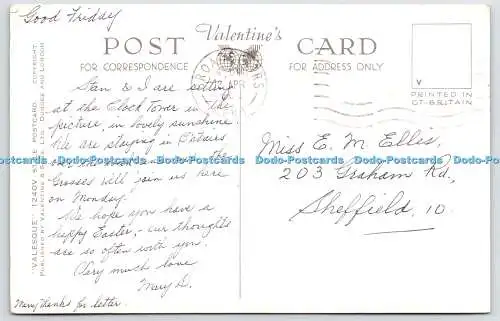 Good Friday
Valentine's
POST CARD
FOR CORRESPONDENCE
FOR ADDRESS ONLY
"VALESQUE" 1240V STYLE POSTCARD. COPYRIGHT.
PUBLISHED BY VALENTINE & DUNDEE AND LONDON
BROADSTAIRS
APR
V
PRINTED IN
GT. BRITAIN
Stan & I are sitting
at the Clock Tower in the
picture, in lovely sunshine.
We are staying in B'stairs
the
Grosses will join us here
on Monday.
We hope you have a
happy Easter, our thoughts
are so often with you.
Very much love
Mary D.
Many thanks for letter.
Miss E. M. Ellis,
203 Graham Rd,
Sheffield, 10.
Dodo-Postcards Dodo-Postcards Dodo-Postcards Dodo-Postcards Dodo-Postcards Dodo-Postcards